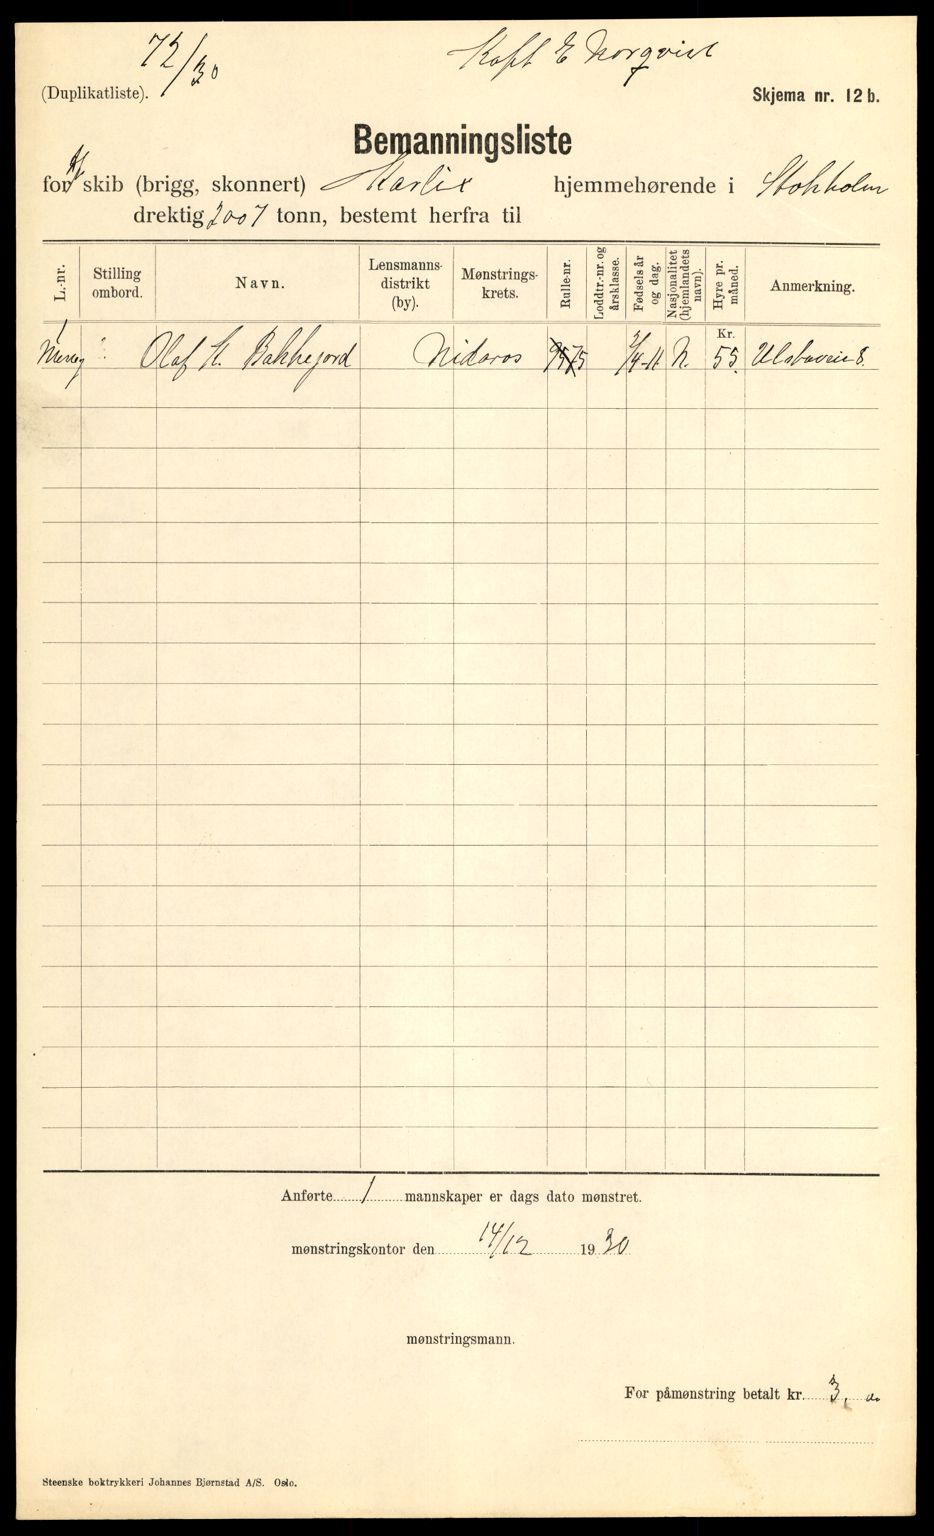 72/30
Kapt E Norqvist
(Duplikatliste).
Skjema nr. 12 b.
Bemanningsliste
for skib (brigg, skonnert) Karlix hjemmehørende i Stokholm
drektig 2007 tonn, bestemt herfra til
L.-nr. Stilling ombord. Navn. Lensmanns-distrikt (by). Mønstrings-krets. Rulle-nr. Loddtr.-nr. og årsklasse. Fødselsår og dag. Nasjonalitet (hjemlandets navn). Hyre pr. måned. Anmerkning.
Kr.
1 Olaf St. Bakkejord Nidaros 75 2/4-11 N. 55. 8.
Anførte 1 mannskaper er dags dato mønstret.
mønstringskontor den 14/12 1930
mønstringsmann.
For påmønstring betalt kr. 3,
Steenske boktrykkeri Johannes Bjørnstad A/S. Oslo.